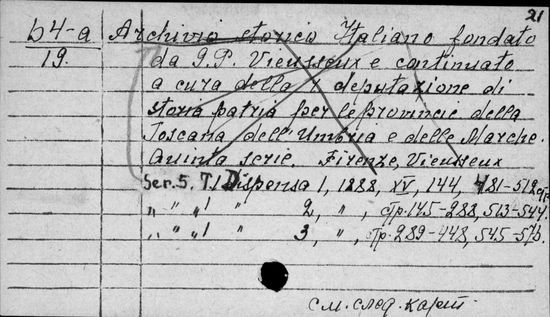 21
b4-a Archivio storico Italiano fondato
19. da G.P. Vieusseux e continuato
a cura della r deputazione di
storia patria per le provincie della
Toscana dell'Umbria e delle Marche.
Quinta serie. Firenze, Vieusseux
Ser. 5. T.1 Dispensa 1, 1888, XV, 144, 481-512 стр.
" " " 1 " 2, ", стр. 145-288, 513-544.
" " " 1 " 3, ", стр. 289-448, 545-576.
См. след. карт.